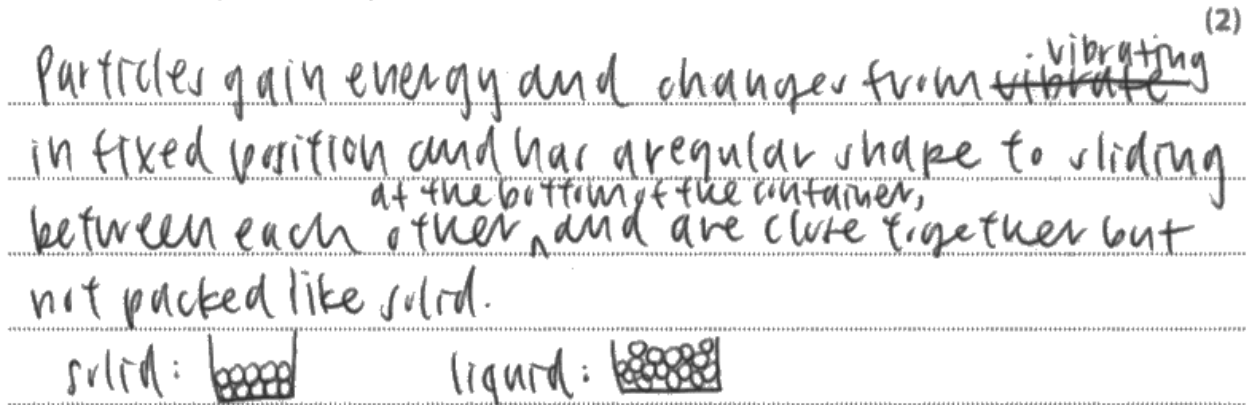 (2)
Particles gain energy and changes from ~~vibrate~~ vibrating
in fixed position and has a regular shape to sliding
between each other, at the bottom of the container, and are close together but
not packed like solid.
solid: liquid: